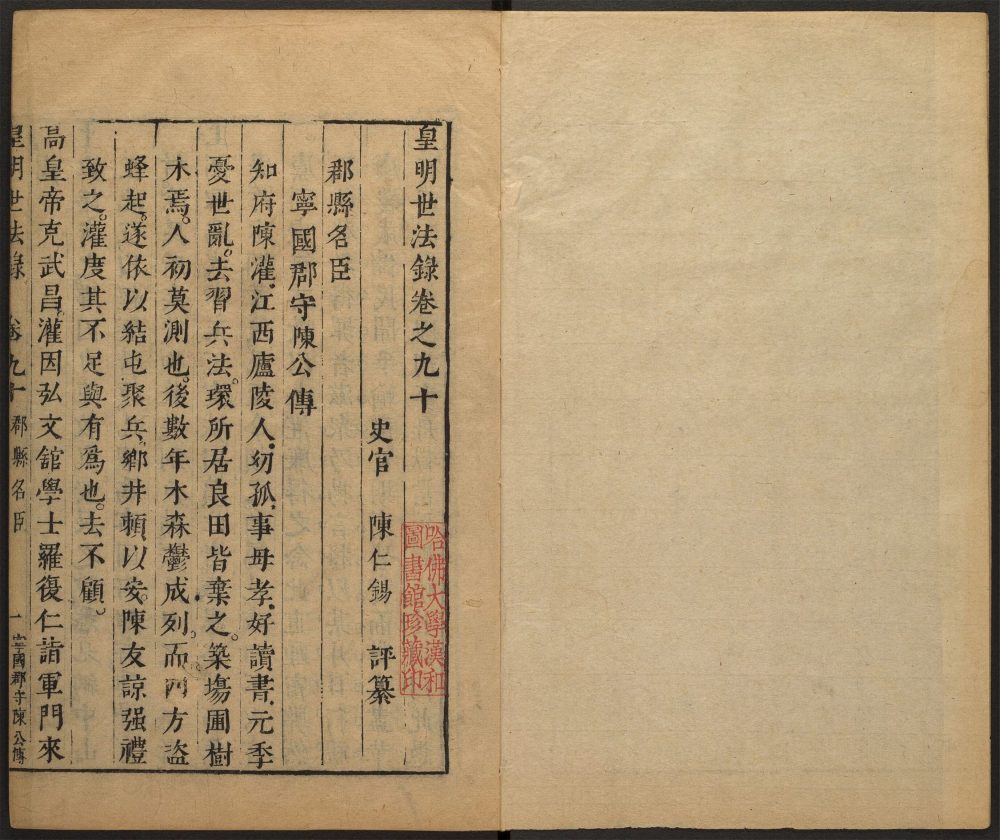 皇明世法錄卷之九十
史官 陳仁錫 評纂
哈佛大學漢和
圖書館珍藏印
郡縣名臣
寧國郡守陳公傳
知府陳灌江西廬陵人幼孤事母孝好讀書元季
憂世亂去習兵法環所居良田皆棄之築塲圃樹
木焉人初莫測也後數年木森鬱成列而四方盜
蜂起遂依以結屯聚兵鄉井頼以安陳友諒强禮
致之灌度其不足與有爲也去不顧
高皇帝克武昌灌因弘文舘學士羅復仁詣軍門來
皇明世法錄 卷九十 郡縣名臣 一 寧國郡守陳公傳